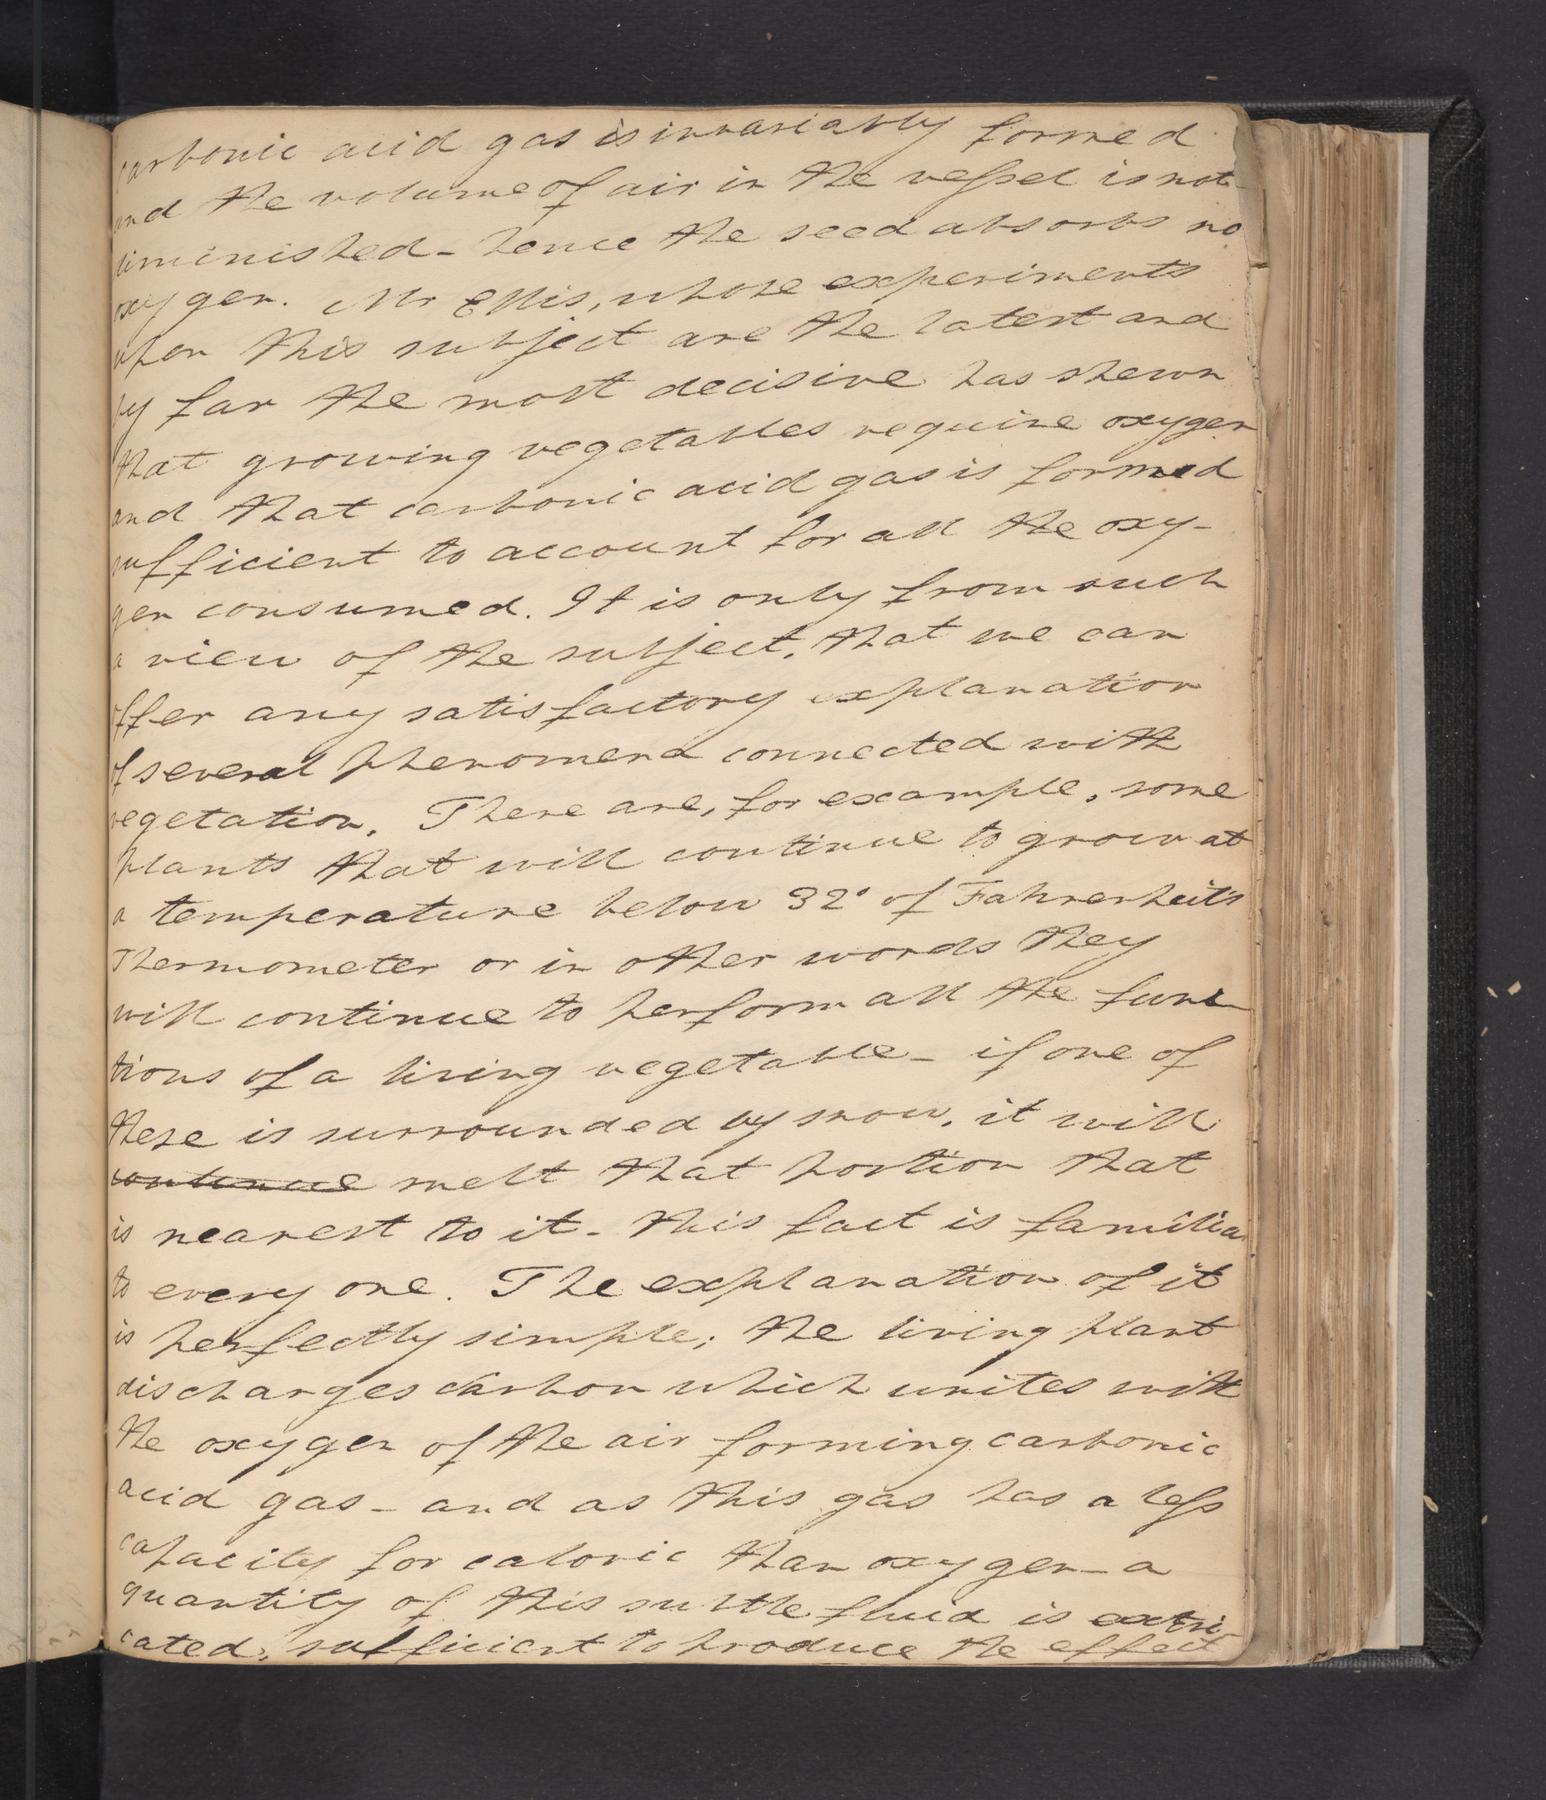 carbonic acid gas is invariably formed
and the volume of air in the vessel is not
diminished - hence the seed absorbs no
oxygen. Mr Ellis, whose experiments
upon this subject are the latest and
by far the most decisive has shewn
that growing vegetables require oxygen
and that carbonic acid gas is formed
sufficient to account for all the oxy-
gen consumed. It is only from such
a view of the subject, that we can
offer any satisfactory explanation
of several phenomena connected with
vegetation. There are, for example, some
plants that will continue to grow at
a temperature below 32° of Fahrenheit's
Thermometer or in other words they
will continue to perform all the func
tions of a living vegetable - if one of
these is surrounded by snow, it will
continue melt that portion that
is nearest to it - this fact is familiar
to every one. The explanation of it
is perfectly simple; the living plant
discharges carbon which unites with
the oxygen of the air forming carbonic
acid gas - and as this gas has a less
capacity for caloric than oxygen - a
quantity of this subtle fluid is extri-
cated, sufficient to produce the effect